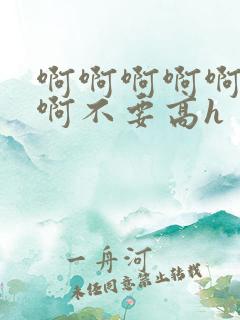 啊啊啊啊啊
啊不要高h
一舟河
未经同意禁止转载